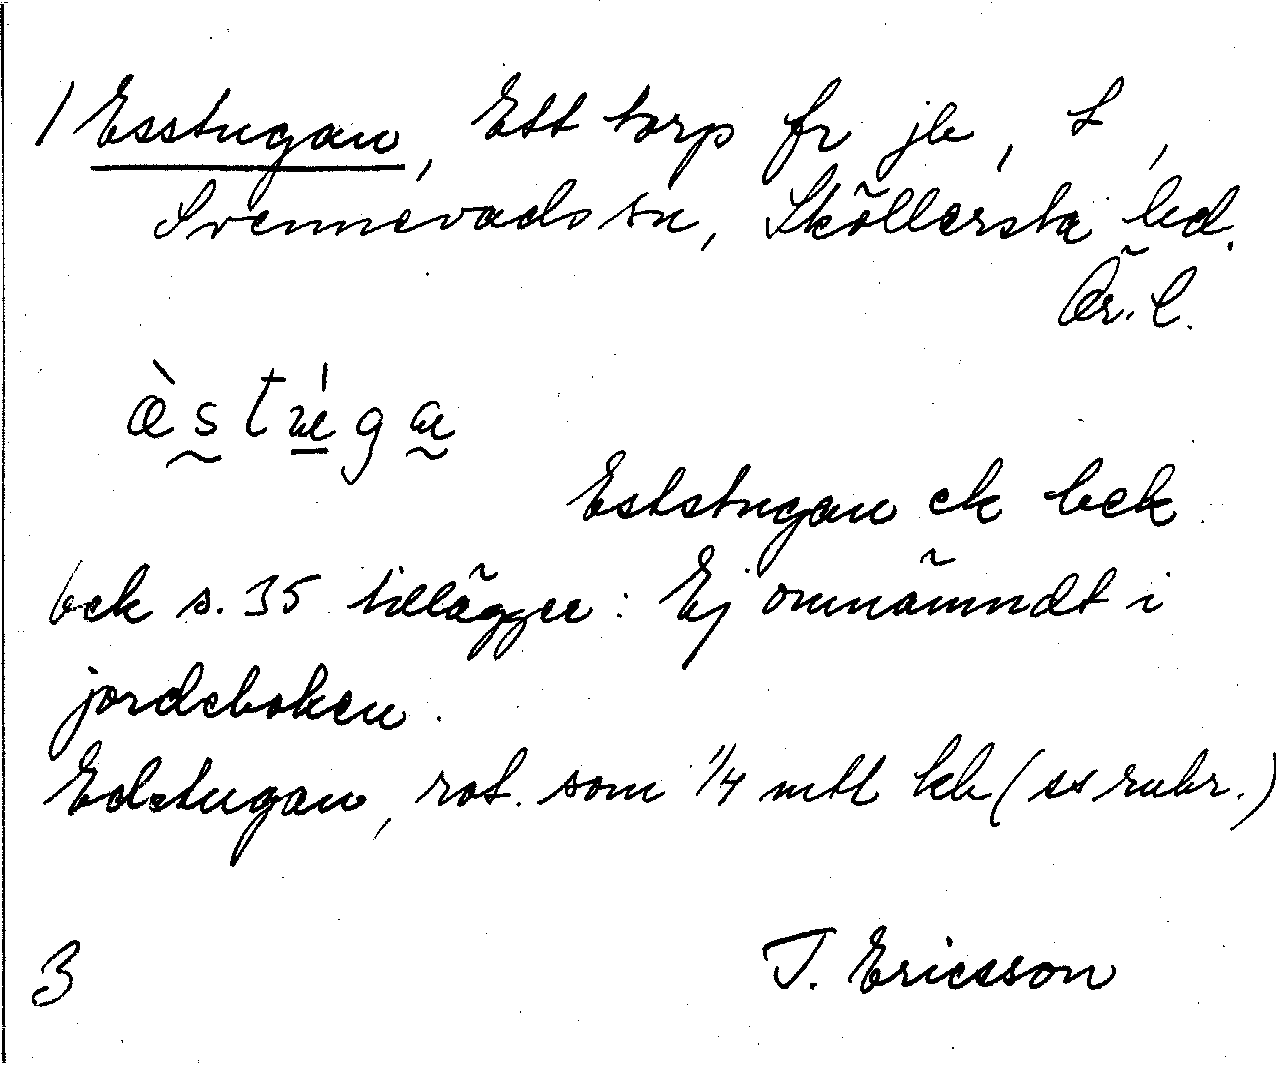 1 Esstugan, Ett torp fr jb, L,
Svennevads sn, Sköllersta hd.
Ör. l.
æ̀stúga
Eststugan ek bek
bek s. 35 tillägger: Ej omnämndt i
jordeboken.
Edstugan, rot. som 1/4 mtl kb (ss rubr.)
3 T. Ericsson